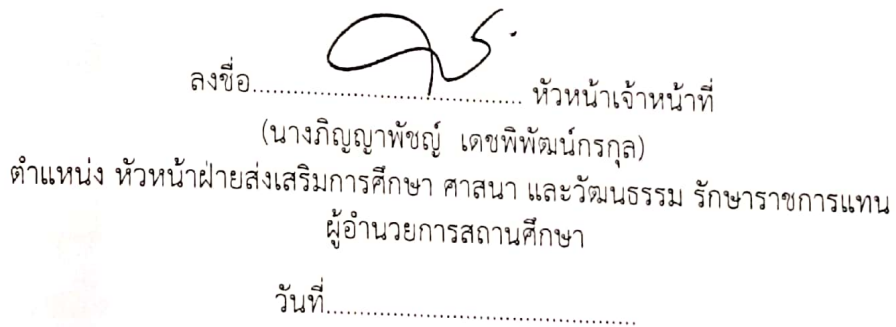 ลงชื่อ........................................ หัวหน้าเจ้าหน้าที่
(นางภิญญาพัชญ์ เดชพิพัฒน์กรกุล)
ตำแหน่ง หัวหน้าฝ่ายส่งเสริมการศึกษา ศาสนา และวัฒนธรรม รักษาราชการแทน
ผู้อำนวยการสถานศึกษา
วันที่..............................................